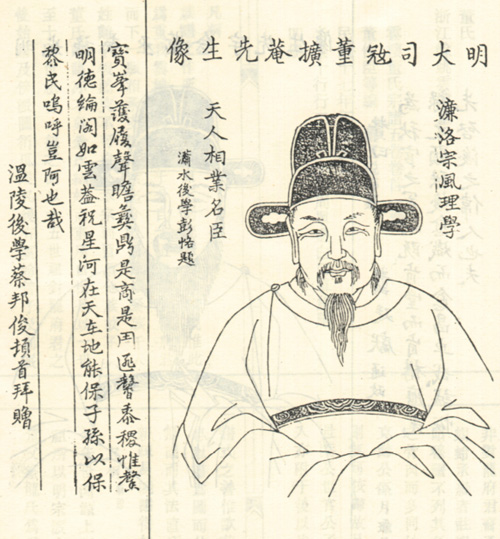 明大司寇董擴菴先生像
濂洛宗風理學
天人相業名臣
瀟水後學彭恪題
寳峯履聲瞻彝鼎是商是周黍稷惟馨
明德綸閣如雲葢祝星河在天在地能保子孫以保
黎民嗚呼豈阿也哉
溫陵後學蔡邦俊頓首拜贈